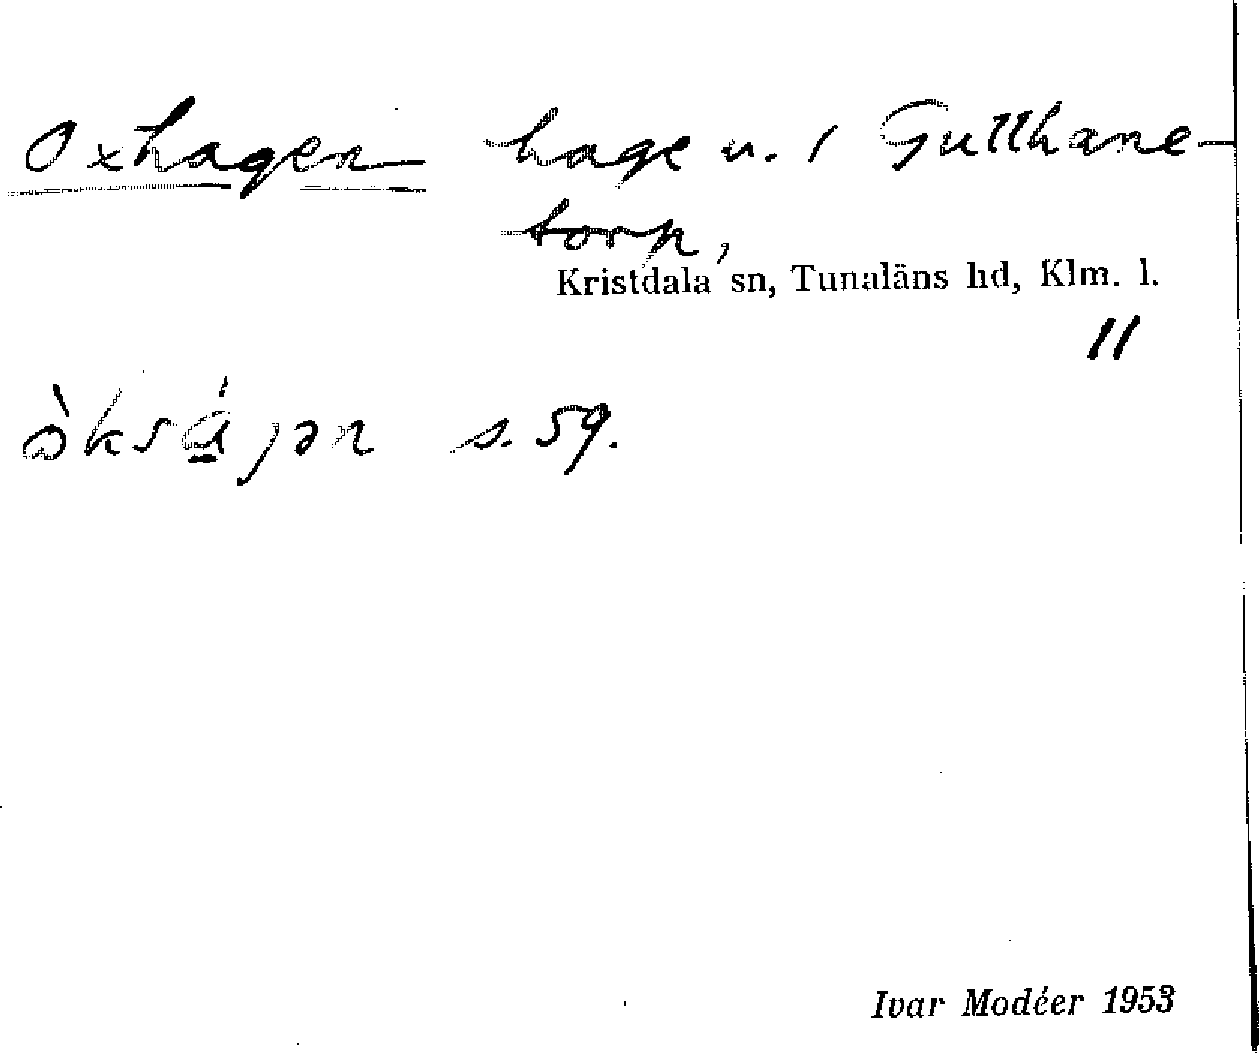 Oxhagen hage u. 1 Gullhane-
torp,
Kristdala sn, Tunaläns hd, Klm. l.
11
òksájən s. 59.
Ivar Modéer 1953